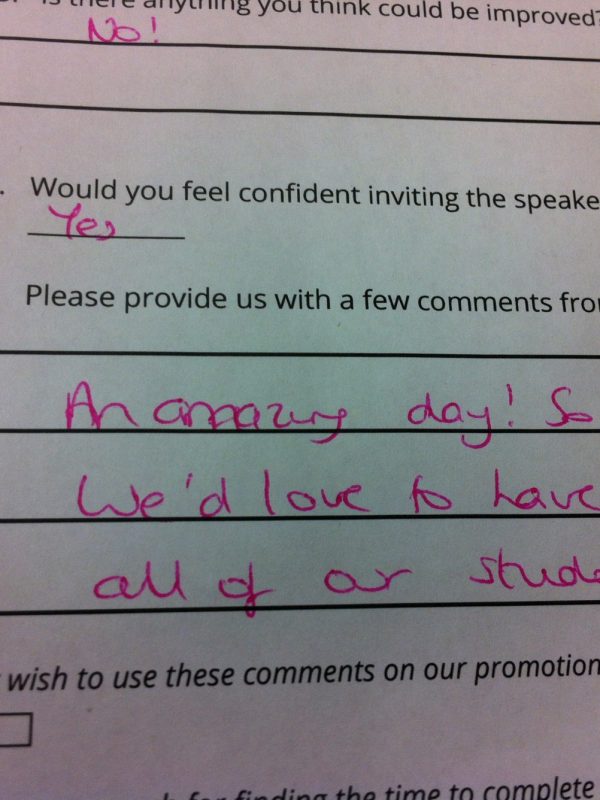 Is there anything you think could be improved?
No!
. Would you feel confident inviting the speake
Yes
Please provide us with a few comments fro
An amazing day! So
We'd love to have
all of our stude
wish to use these comments on our promotion
for finding the time to complete